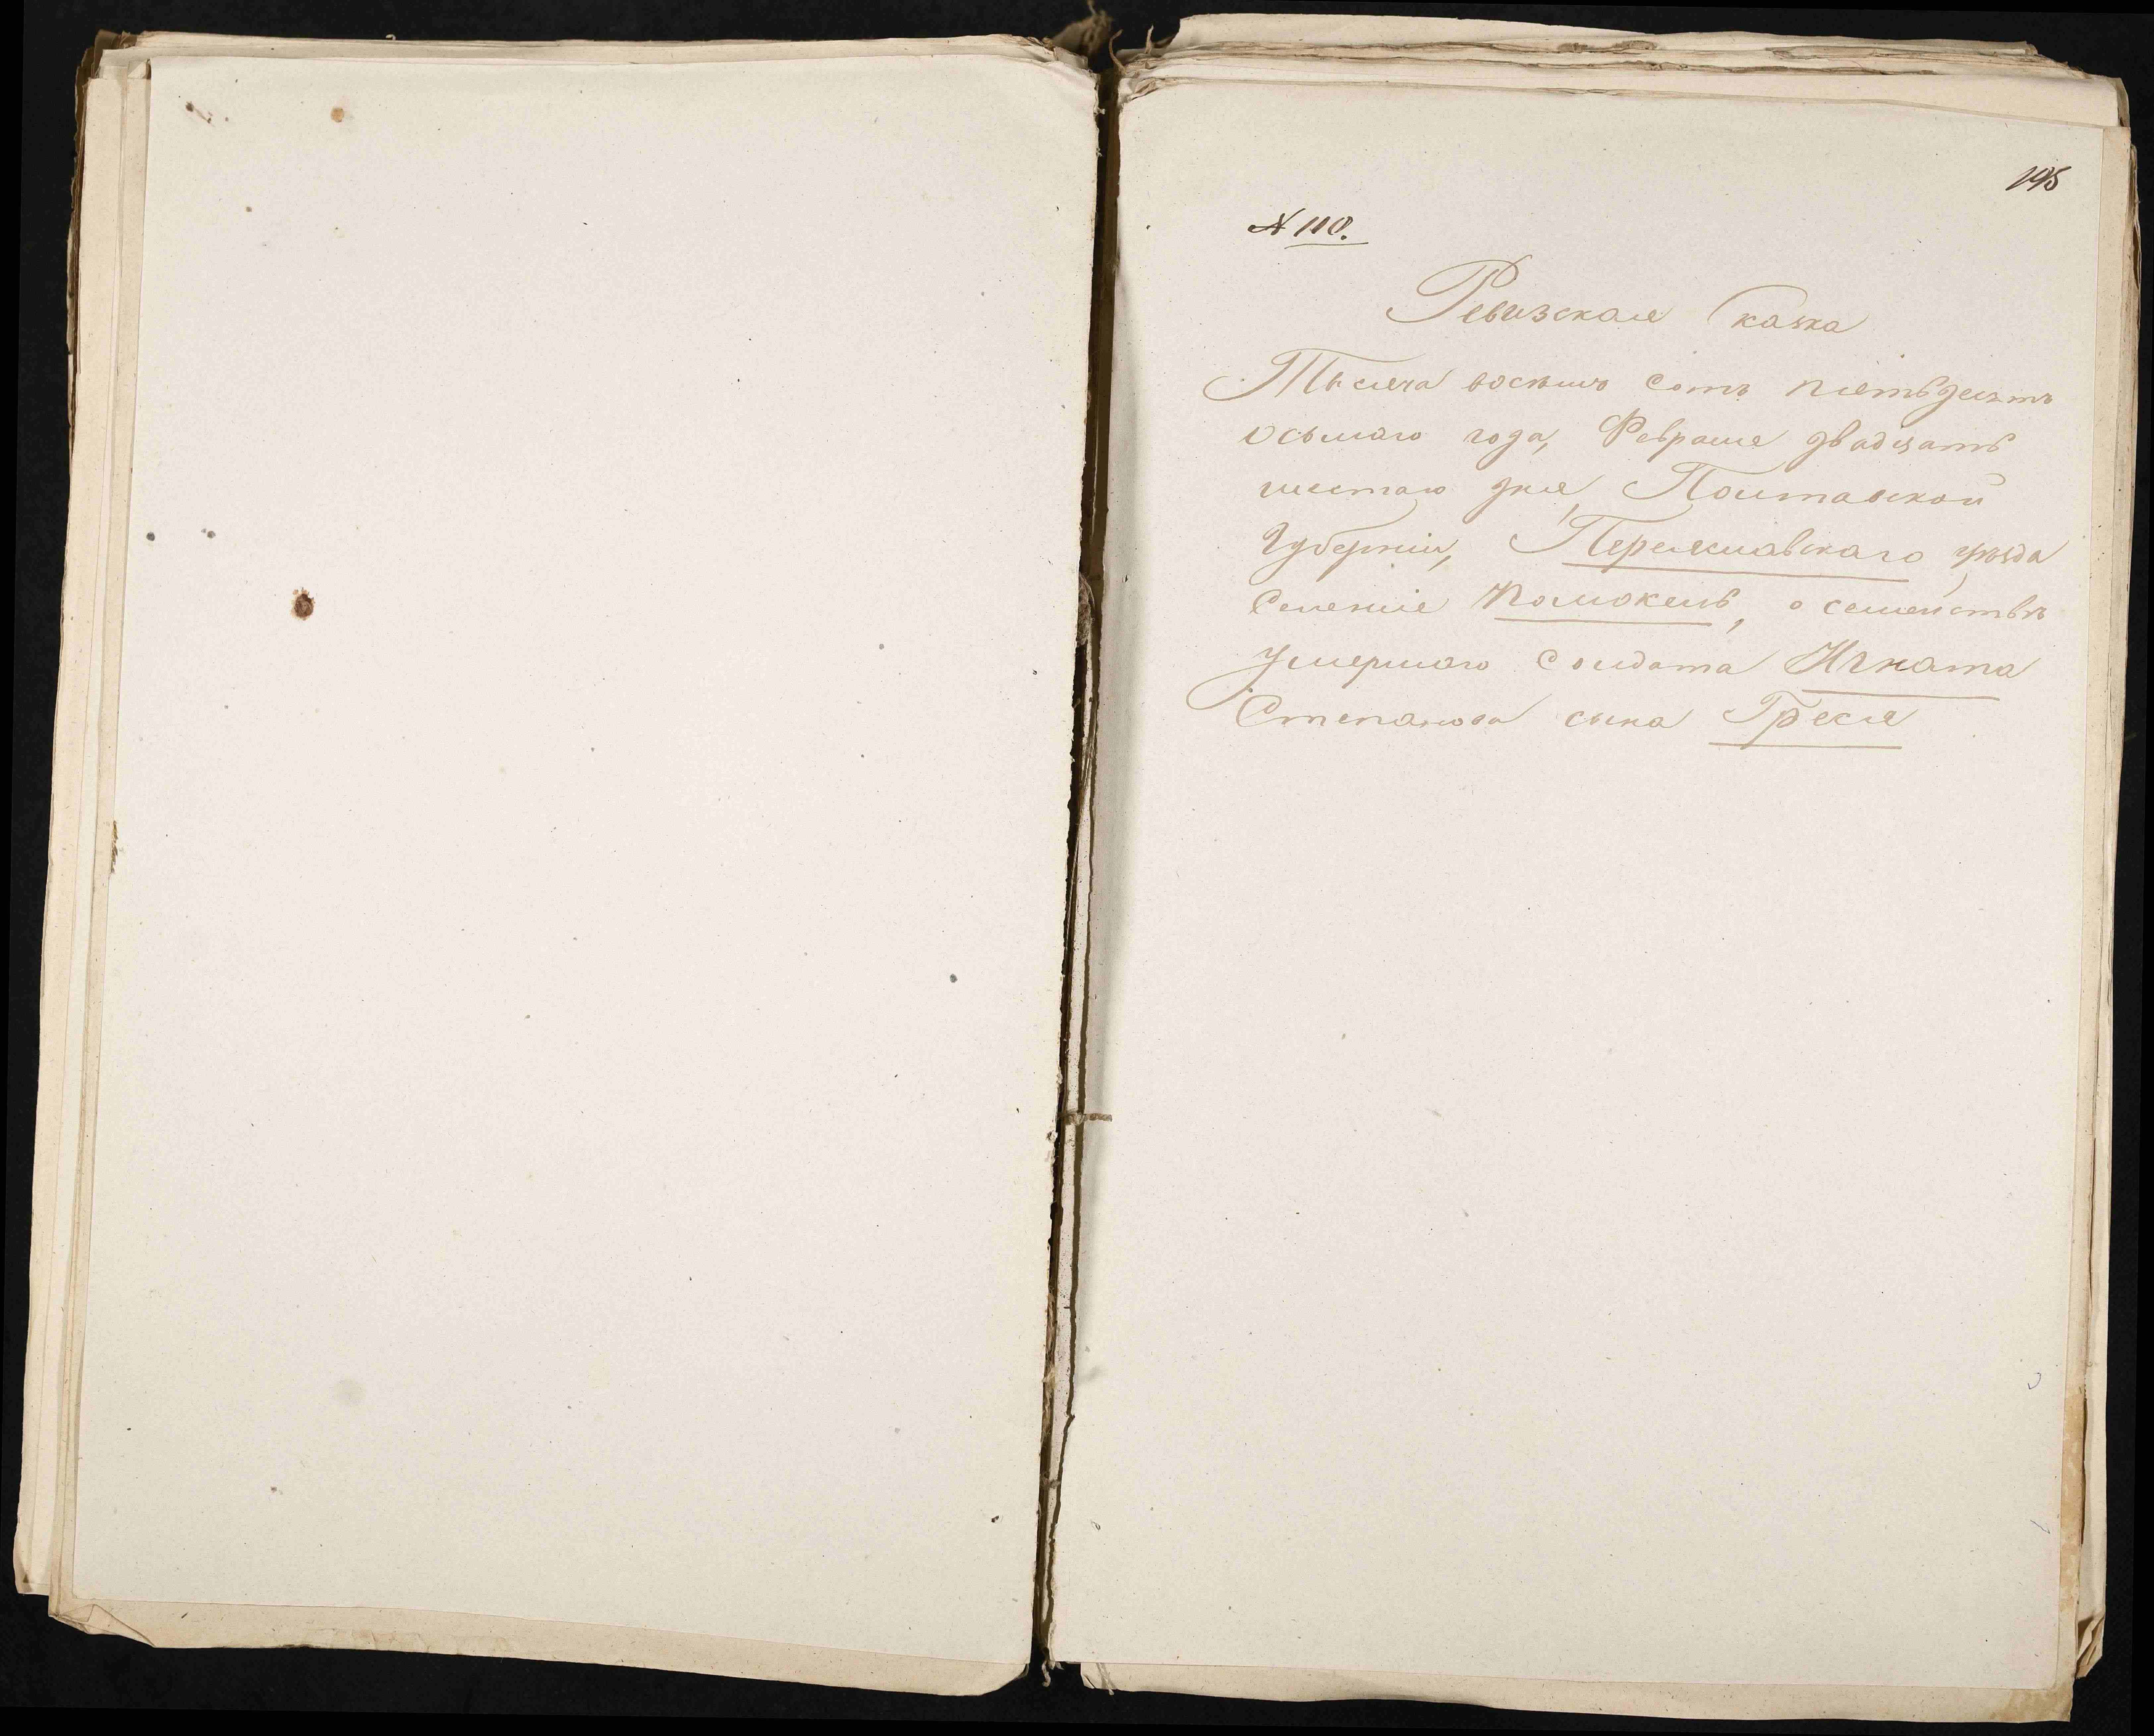 195
№ 110.
Ревизская Сказка
Тысяча восѣмъ сотъ пятьдесятъ
осьмаго года, Февраля двадцать
шестаго дня Полтавской
Губерніи, Переяславскаго уѣзда
Селеніе Помоклъ, о семействѣ
умершаго Солдата Игната
Степанова сына Греся